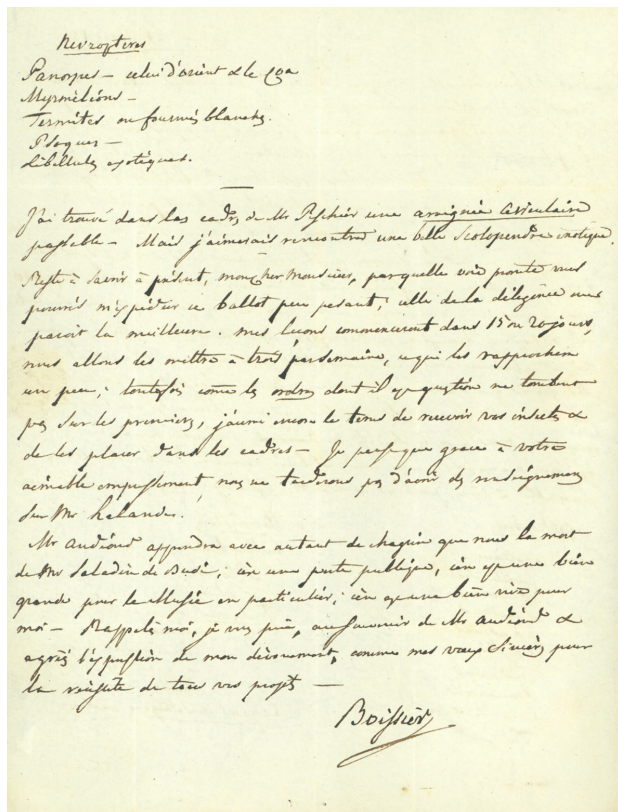 Nevroptères
Panorpes — celui d'orient & le Coa
Myrméléons —
Termites ou fourmis blanches.
Psoques —
Libellules exotiques.
J'ai trouvé dans les cadres de Mr Peschier une arraignée aviculaire
passable — Mais j'aimerais rencontrer une belle Scolopendre exotique.
Reste à savoir à présent, mon cher Monsieur, par quelle voie prompte vous
pourrés m'expédier ce ballot peu pesant; celle de la diligence me
paroit la meilleure. mes leçons commenceront dans 15 ou 20 jours,
nous allons les mettre à trois par semaine, ce qui les rapprochera
un peu; toutefois comme les ordres dont il est question ne tombent
pas sur les premiers, j'aurai encore le tems de recevoir vos insectes &
de les placer dans les cadres — Je pense que grace à votre
aimable empressement nous ne tarderons pas d'avoir des renseignemens
sur Mr Lalande.
Mr Audéoud apprendra avec autant de chagrin que nous la mort
de Mr Saladin de Budé; c'en une perte publique, c'en est une bien
grande pour le Musée en particulier; c'en est une bien vive pour
moi — Rappelés moi, je vous prie, au souvenir de Mr Audéoud &
agréés l'expression de mon dévouement, comme mes vœux sincères pour
la réussite de tous vos projets —
Boissier